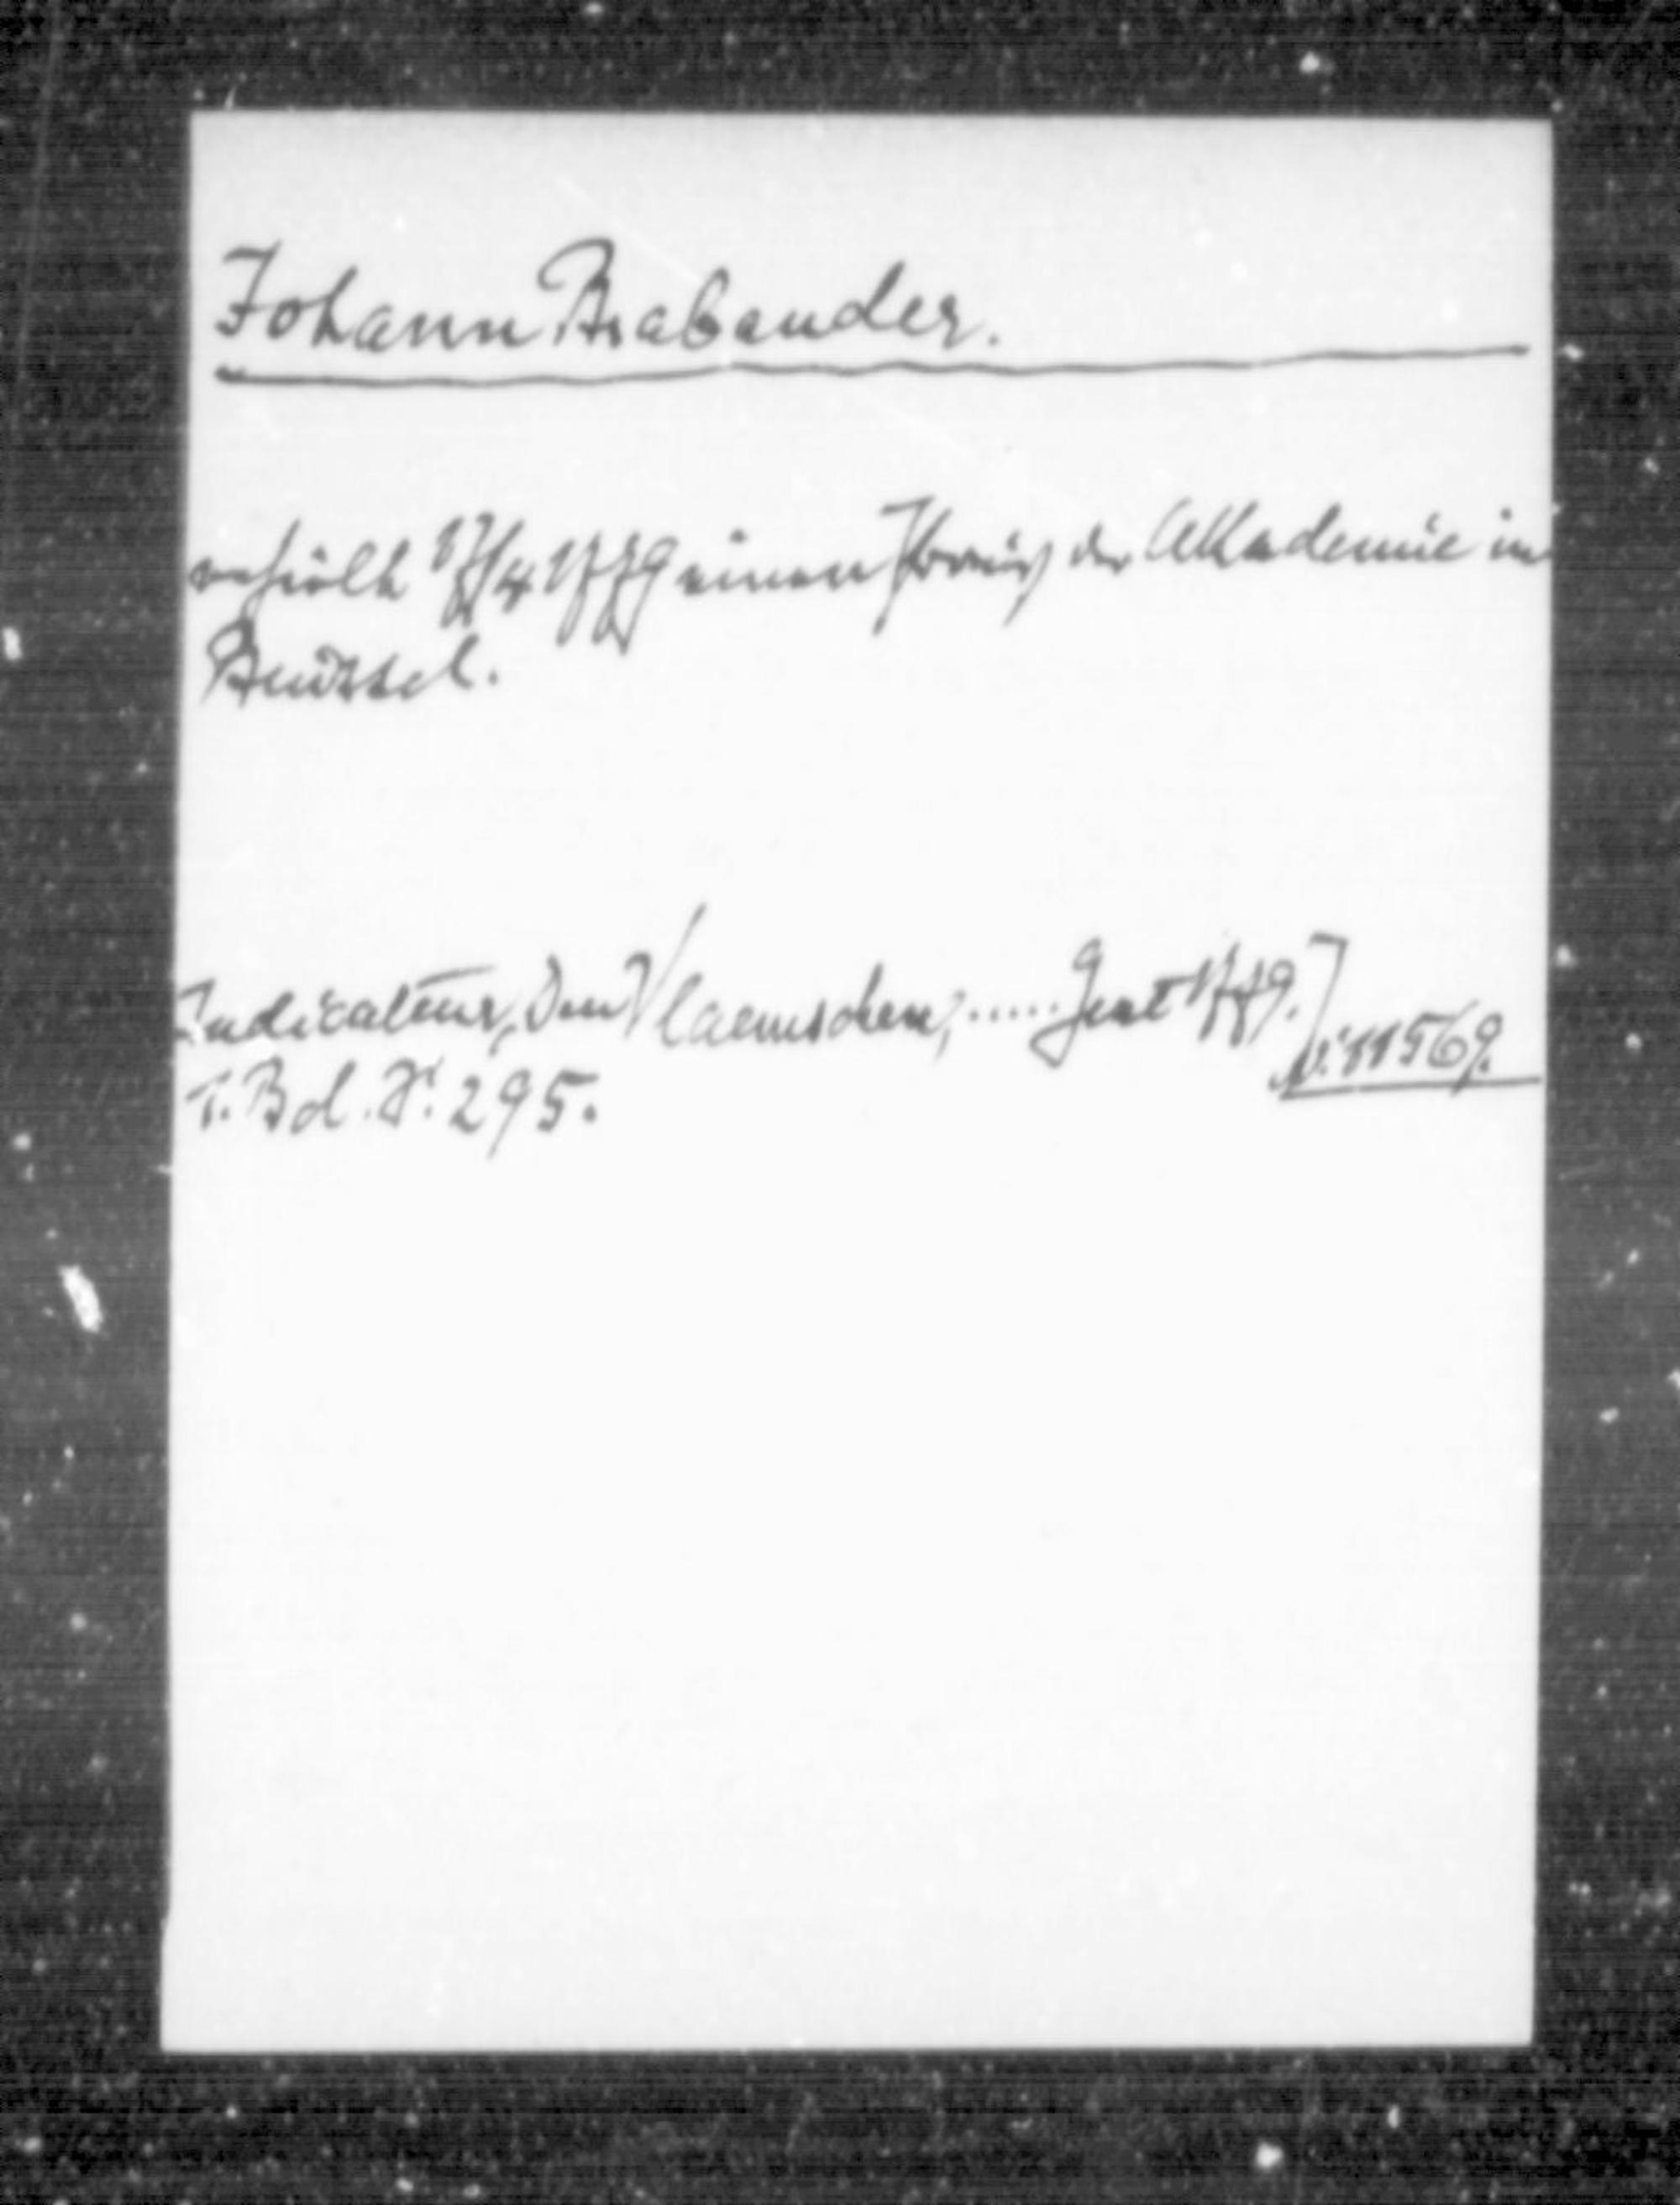 Johann Brabander.
erhielt 17/4 1779 einen Preis der Akademie in
Brüssel.
Indicateur, Den Vlaemschen, ..... Gent 1779.]
N: 11569.
1. Bd. S. 295.